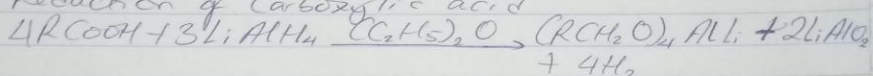 Reduction of Carboxylic acid
4RCOOH + 3LiAlH₄ (C₂H₅)₂O → (RCH₂O)₄AlLi + 2LiAlO₂
+ 4H₂